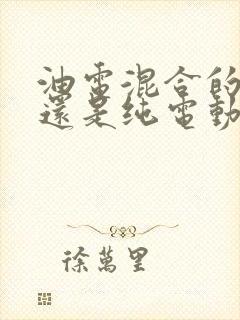 油電混合的
還是纯電動
徐萬里